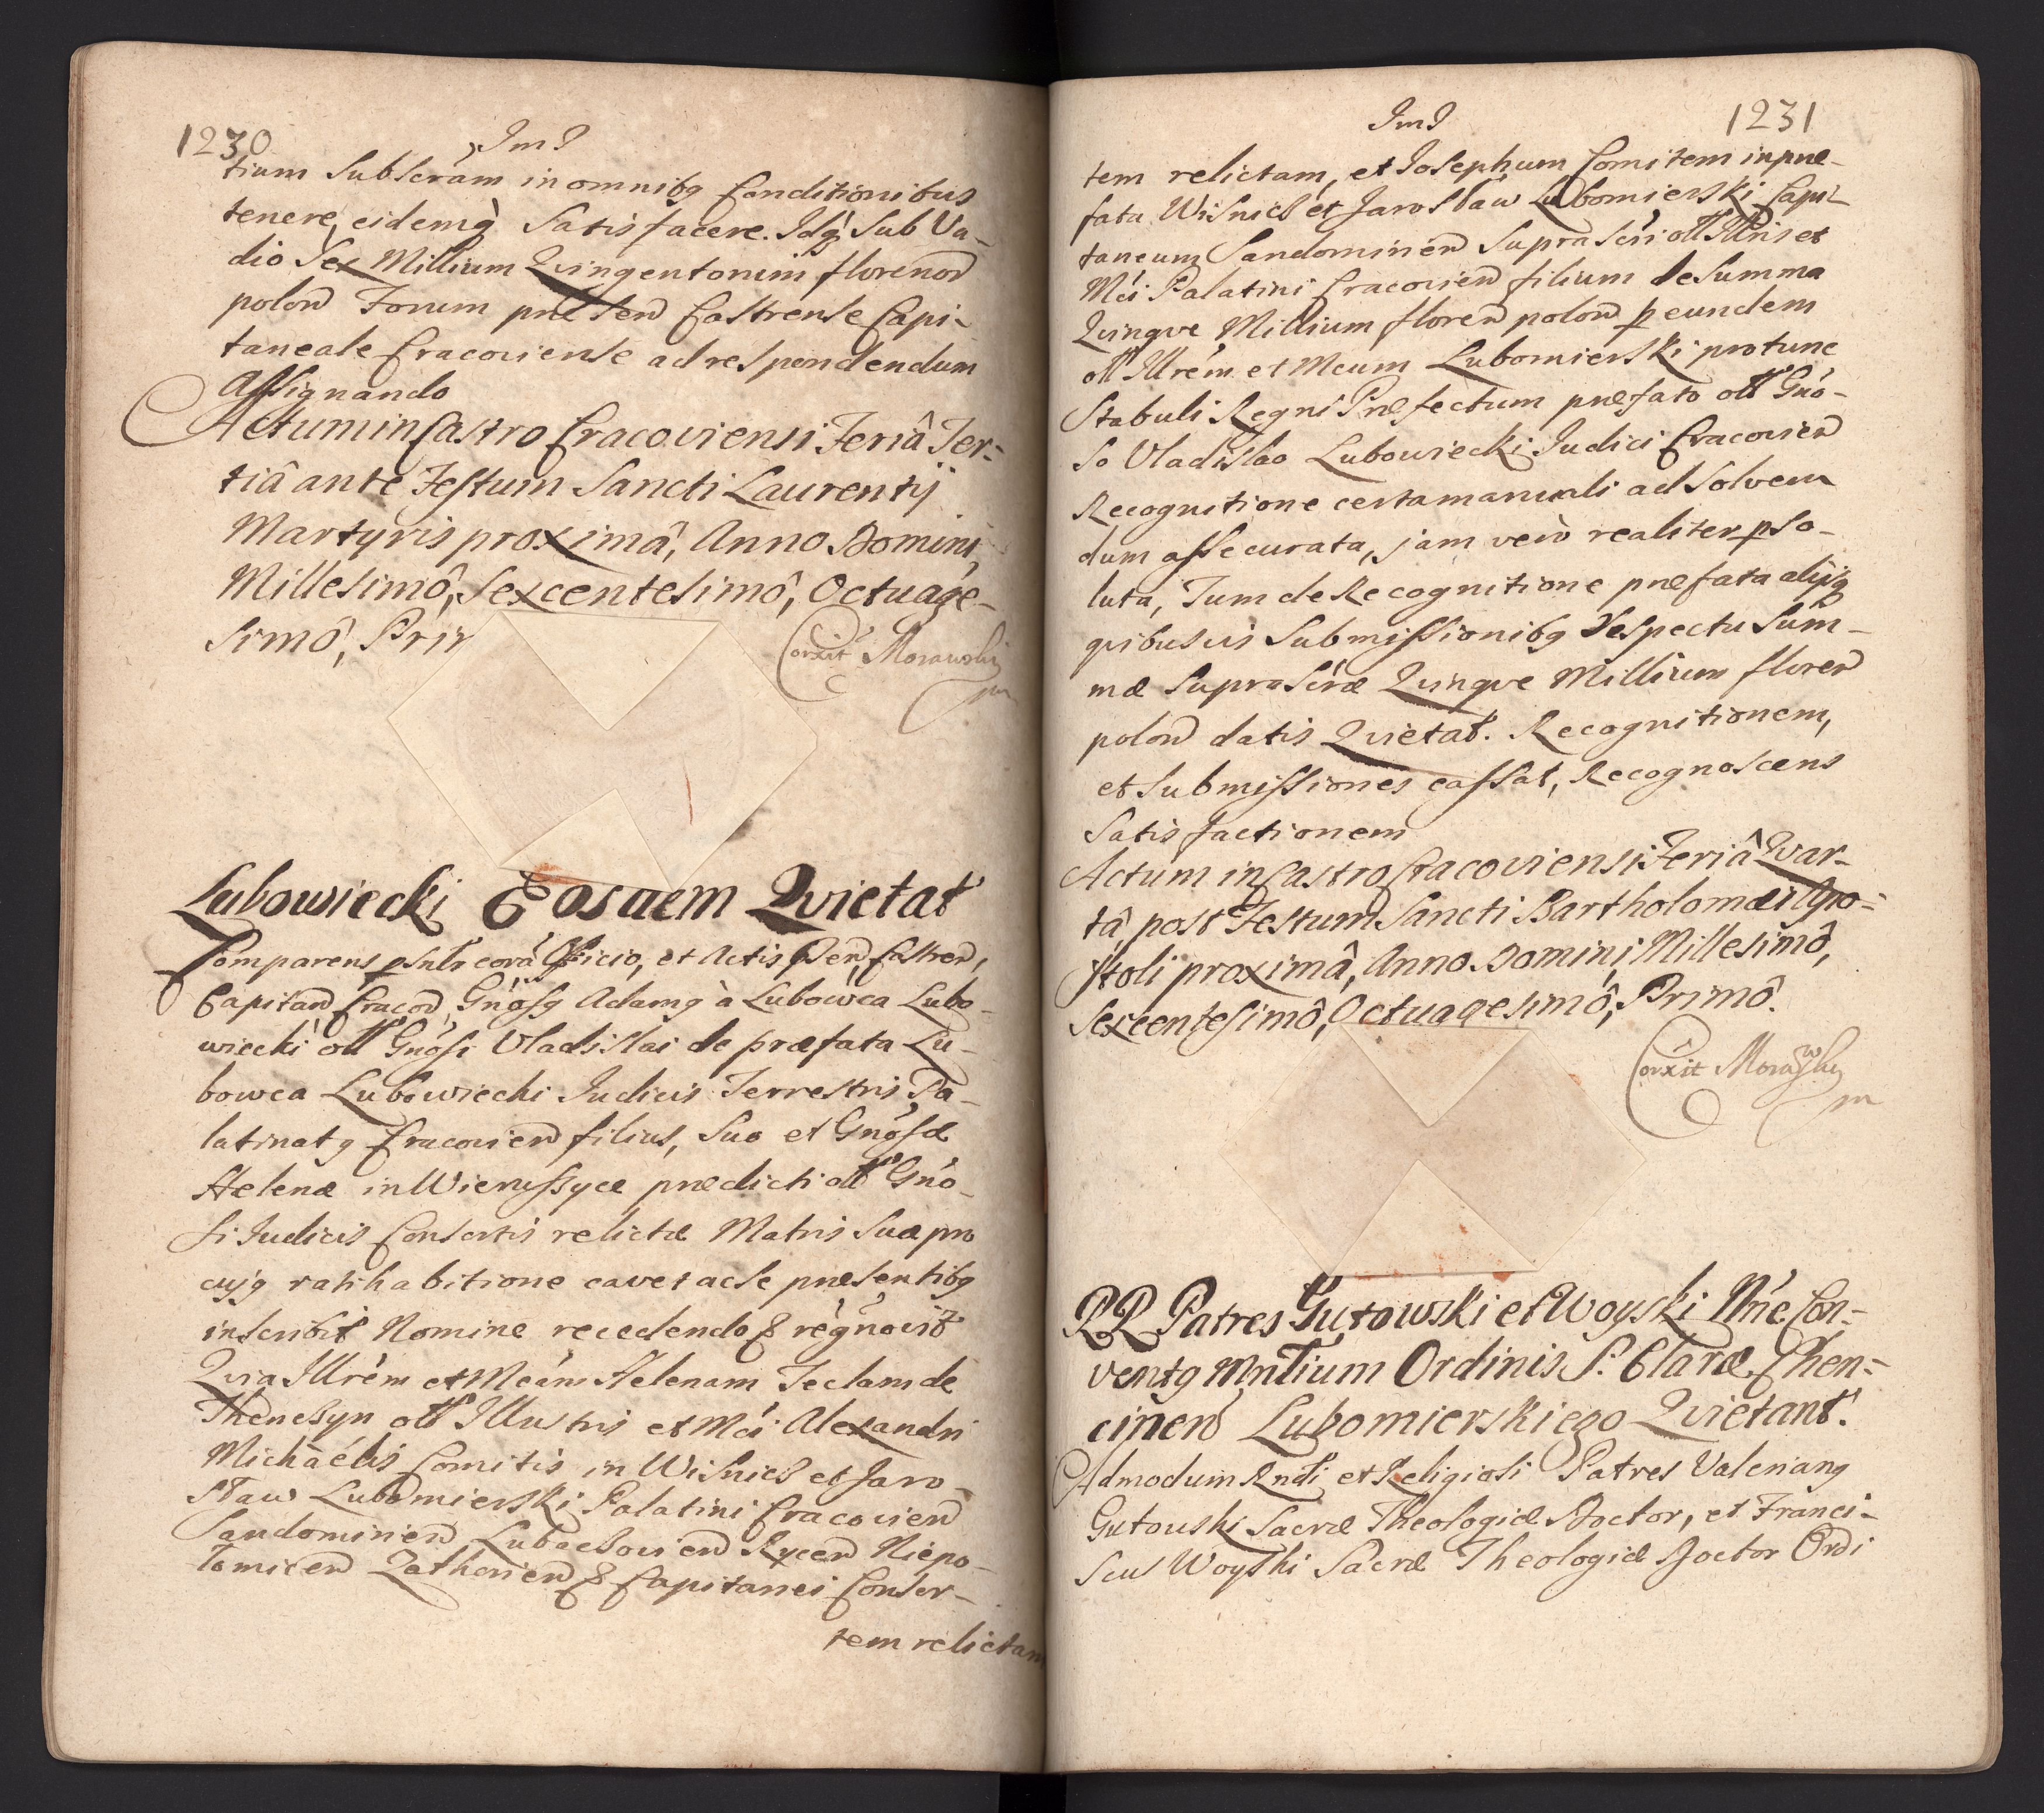 1230 ImJ
tium Subscrãm in omnibq Conditionibus
tenere, eidemq̀ Satisfacere. Idq̀ Sub Va-
dio Sex Millium Qvingentorum florenor
polon Forum præsen Castrense Capi-
taneale Cracoviense ad respondendum
Assignando
Actum in Castro Cracoviensi Feriâ Ter-
tiâ ante Festum Sancti Laurentij
Martyris proximâ, Anno Domini
Millesimô, Sexcentesimô, Octuage-
simô, Prim
Corxit Morawski
Lubowiecki Eosdem Qvietat
Comparens psnlr corã Officio, et Actis psen Castren,
Capitan Cracov, Gnõsq Adamq à Lubowca Lubo-
wiecki olł Gnõsi Vladislai de præfata Lu-
bowca Lubowiecki Judicis Terrestris Pa-
latinatq Cracovien filius, Suo et Gnõsæ
Helenæ in Wierussyce prædicti olł Gnõ-
si Judicis Consortis relictæ Matris Suæ pro
cujq ratihabitione cavet ac se præsentibq
inscribit Nomine recedendo & rẽgnovit
Qvia Illrém et Mcám Helenam Teclam de
Thenczyn olł Illustris et Mci Alexandri
Michaélis Comitis in Wisnicz et Jaro-
sław Lubomierski Palatini Cracovien
Sandomirien Lubaczovien Rycen Niepo-
lomicen Zathorien & Capitanei Consor-
tem relictam
ImJ 1231
tem relictam, et Josephum Comitem in præ-
fata Wisnicz et Jarosław Lubomierski Capi-
taneum Sandomirien Suprascri olł Illris et
Mci Palatini Cracovien filium de Summa
Qvinqve Millium floren polon p eundem
olł Illrém et Mcum Lubomierski pro tunc
Stabuli Regni Præfectum præfato olł Gnõ-
so Vladislao Lubowiecki Judici Cracovien
Recognitione certa manuali ad Solven
dum assecurata, jam verò realiter pso-
luta, Tum de Recognitione præfata alijq
qvibusvis Submissionibq respectu Sum-
mæ Suprascræ Qvinqve Millium floren
polon datis Qvietat. Recognitionem,
et Submissiones cassat, Recognoscens
Satisfactionem
Actum in Castro Cracoviensi Feriâ Qvar-
tâ post Festum Sancti Bartholomæi Apo-
stoli proximâ, Anno Domini Millesimô,
Sexcentesimô, Octuagesimô, Primô.
Corxit Morawski
RR Patres Gutowski et Woyski Nñe Con-
ventq Mnlium Ordinis S: Claræ Chen-
cinen Lubomierskiego Qvietant.
Admodum Rndi et Religiosi Patres Valerianq
Gutowski Sacræ Theologiæ Doctor, et Franci-
scus Woyski Sacræ Theologiæ Doctor Ordi